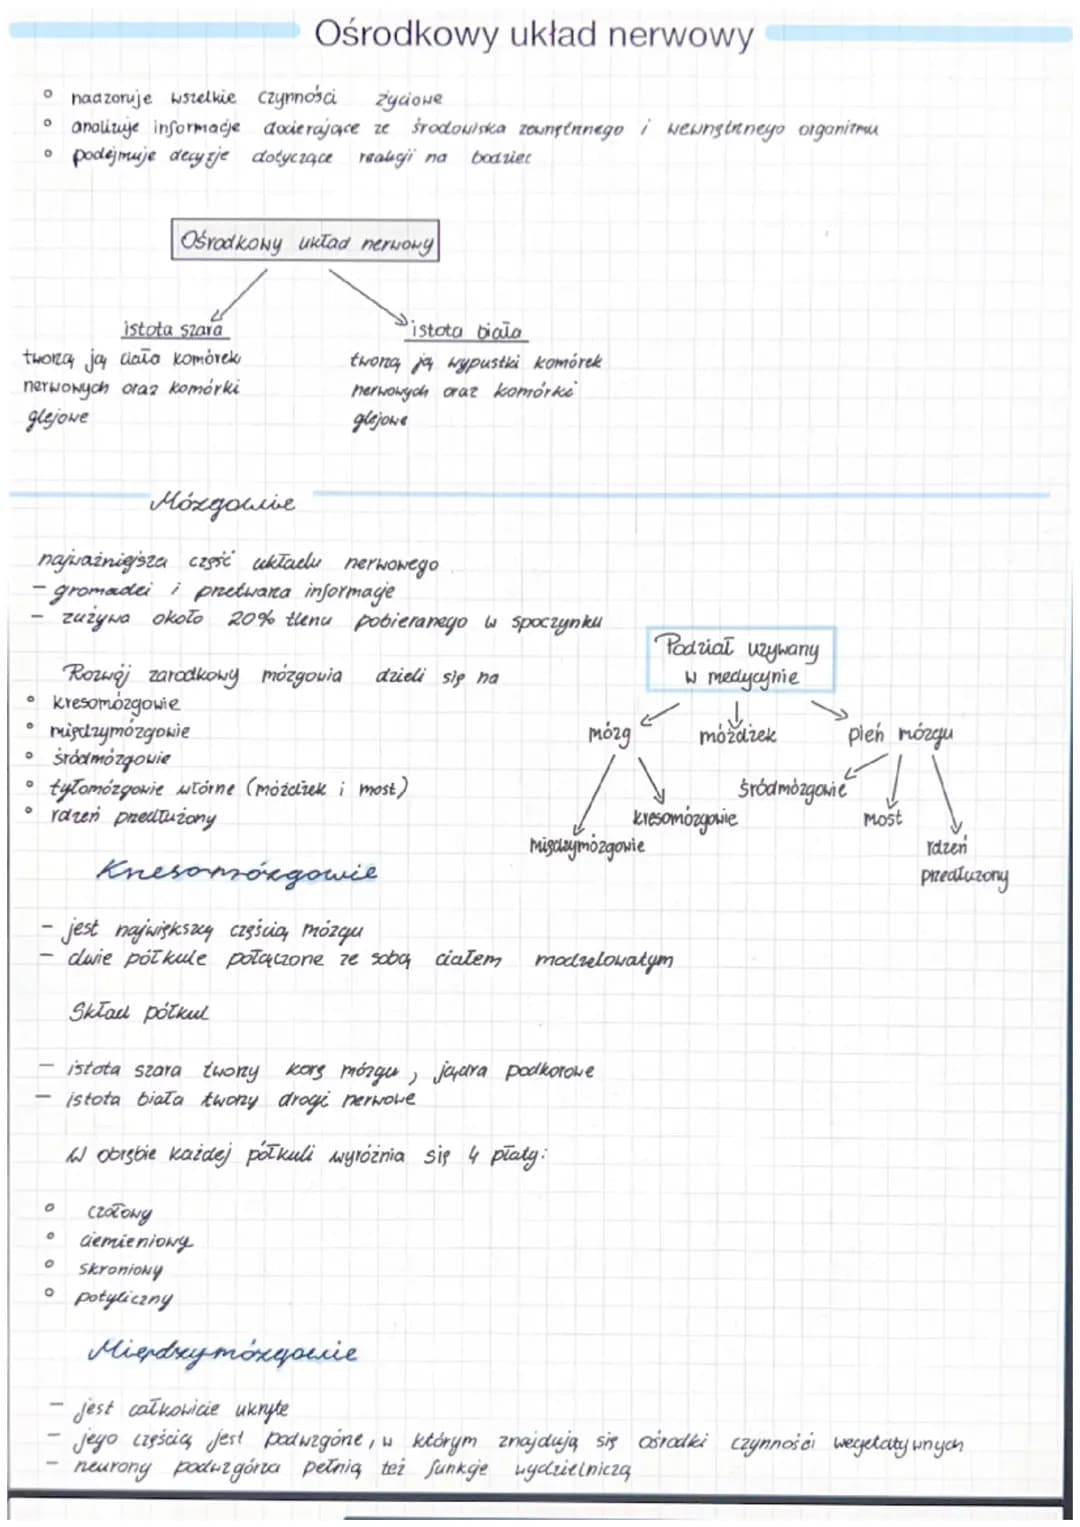 Ośrodkowy układ nerwowy
nadzoruje wszelkie czynności życiowe
analizuje informacje docierające ze środowiska zewnętrznego i wewnętrznego organizmu
podejmuje decyzje dotyczące reakcji na bodziec
Ośrodkowy układ nerwowy
istota szara
tworzą ją ciała komórek
nerwowych oraz komórki
glejowe
istota biała
tworzą ją wypustki komórek
nerwowych oraz komórki
glejowe
Mózgowie
najważniejsza część układu nerwowego
- gromadzi i przetwarza informacje
- zużywa około 20% tlenu pobieranego w spoczynku
Rozwój zarodkowy mózgowia dzieli się na
kresomózgowie
międzymózgowie
śródmózgowie
tyłomózgowie wtórne (móżdżek i most)
rdzeń przedłużony
Podział używany
w medycynie
mózg
móżdżek
pień mózgu
śródmózgowie
kresomózgowie
most
międzymózgowie
rdzeń
przedłużony
Kresomózgowie
- jest największą częścią mózgu
- dwie półkule połączone ze sobą ciałem modzelowatym
Skład półkul
- istota szara tworzy korę mózgu, jądra podkorowe
- istota biała tworzy drogi nerwowe
W obrębie każdej półkuli wyróżnia się 4 płaty:
czołowy
ciemieniowy
skroniowy
potyliczny
Międzymózgowie
- jest całkowicie ukryte
- jego częścią jest podwzgórze, w którym znajdują się ośrodki czynności wegetatywnych
- neurony podwzgórza pełnią też funkcje wydzielniczą